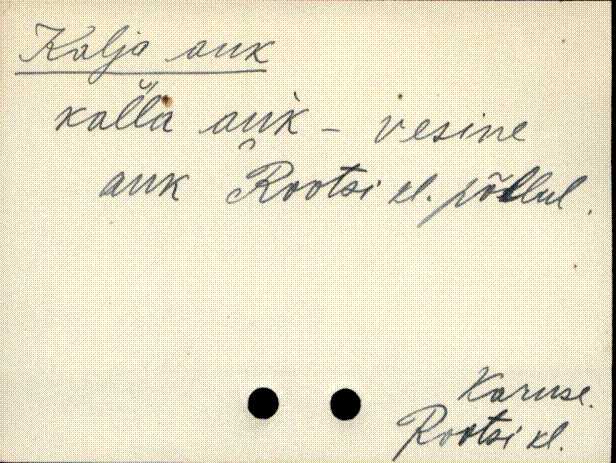 Kalja auk
kal̆l̆a auk – vesine
auk Rootsi kl. põllul.
Karuse.
Rootsi kl.